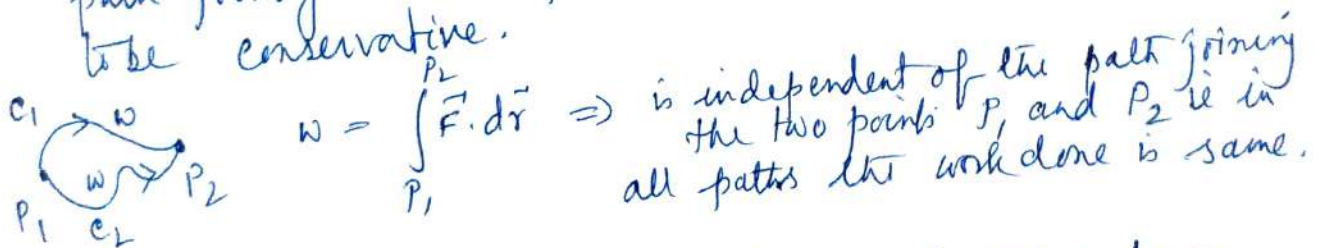 to be conservative.
C₁ w w = ∫ P₁ P₂ F⃗ . dr⃗ ⇒ is independent of the path joining
the two points P₁ and P₂ ie in
all paths the work done is same.
w P₂
P₁ C₂